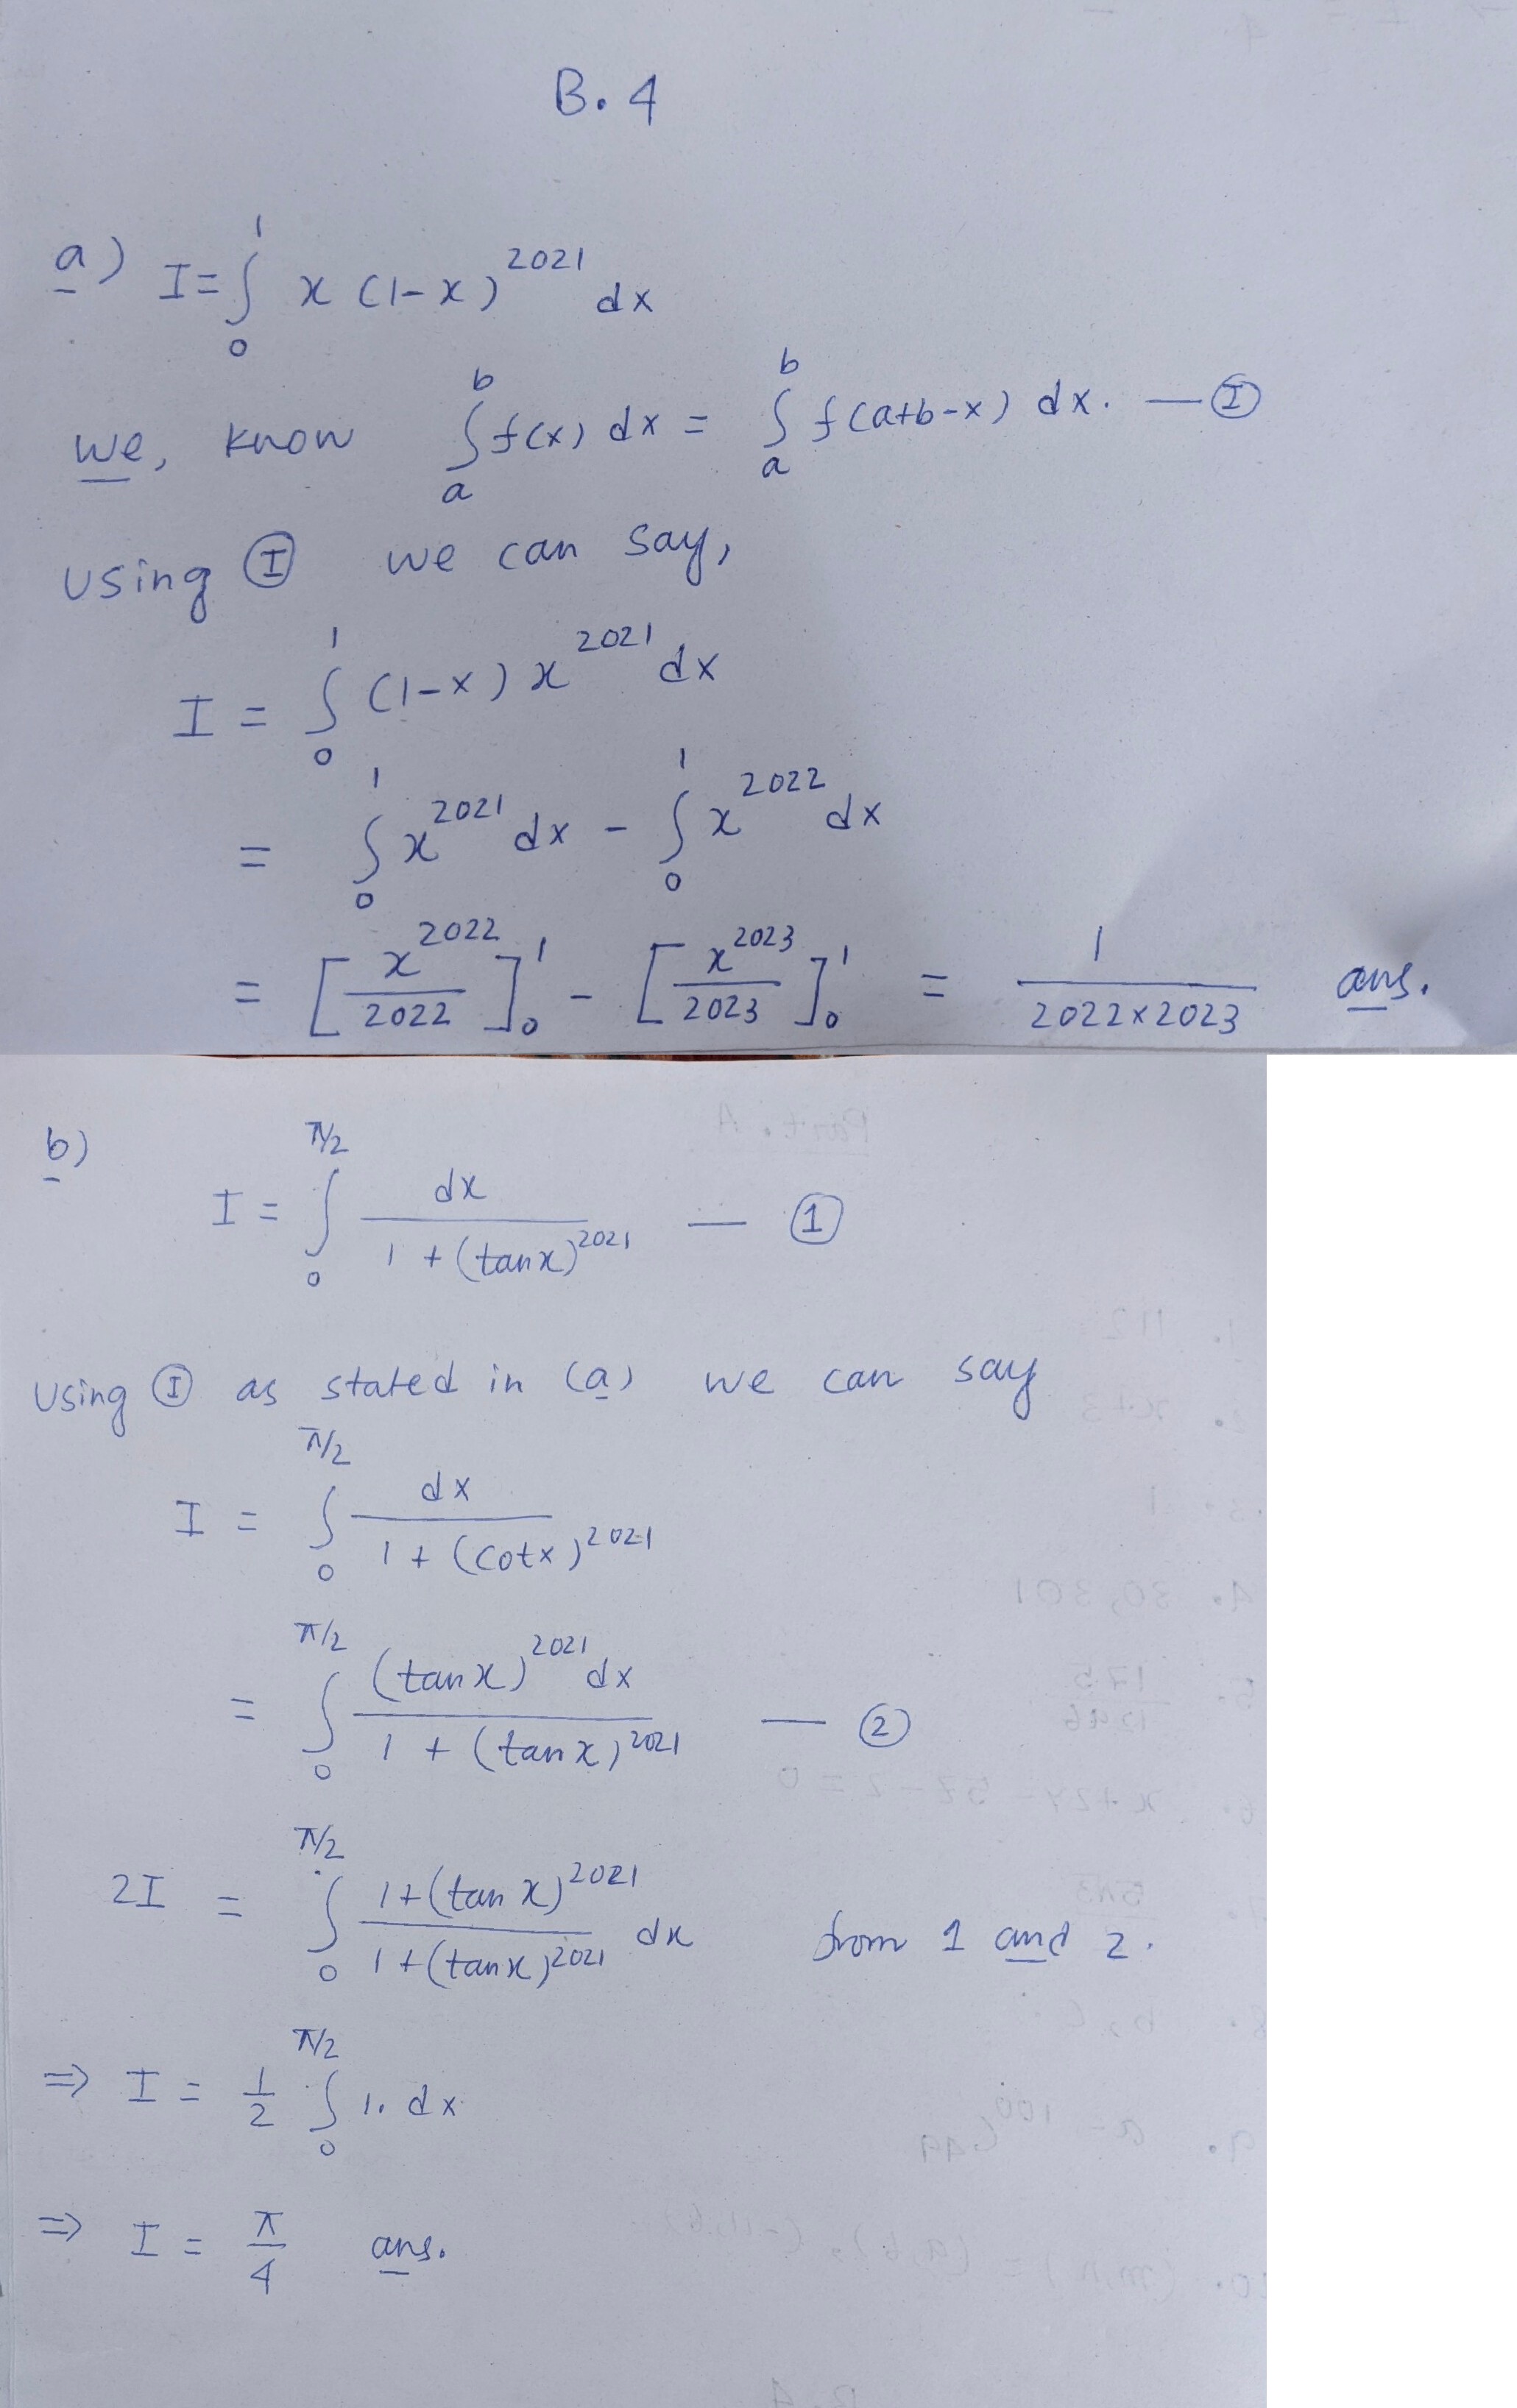 B. 4
a) I = ∫₀¹ x (1-x)^2021 dx
we, know ∫ₐᵇ f(x) dx = ∫ₐᵇ f(a+b-x) dx. — Ⓘ
Using Ⓘ we can say,
I = ∫₀¹ (1-x) x^2021 dx
= ∫₀¹ x^2021 dx - ∫₀¹ x^2022 dx
= [x^2022/2022]₀¹ - [x^2023/2023]₀¹ = 1/(2022×2023) ans.
b) I = ∫₀^(π/2) dx/(1 + (tan x)^2021) — ①
Using Ⓘ as stated in (a) we can say
I = ∫₀^(π/2) dx/(1 + (cot x)^2021)
= ∫₀^(π/2) (tan x)^2021 dx/(1 + (tan x)^2021) — ②
2I = ∫₀^(π/2) (1+(tan x)^2021)/(1+(tan x)^2021) dx from 1 and 2.
⇒ I = 1/2 ∫₀^(π/2) 1. dx
⇒ I = π/4 ans.